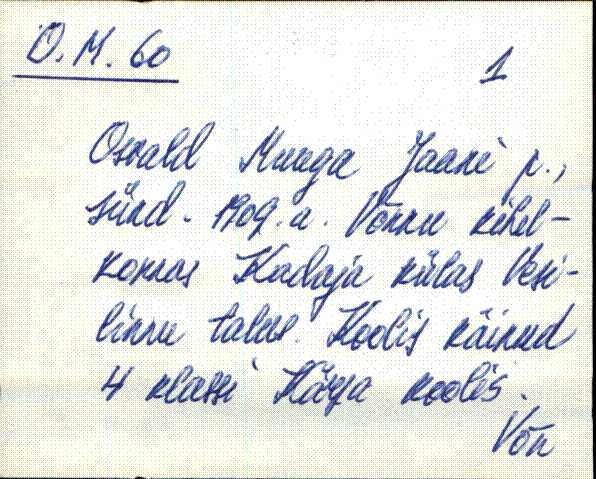 O. M. 60
1
Osvald Muuga Jaani p.,
sünd. 1909. a. Võnnu kihel-
konnas Kadaja külas Vesi-
linnu talus. Koolis käinud
4 klassi Kärsa koolis.
Võn